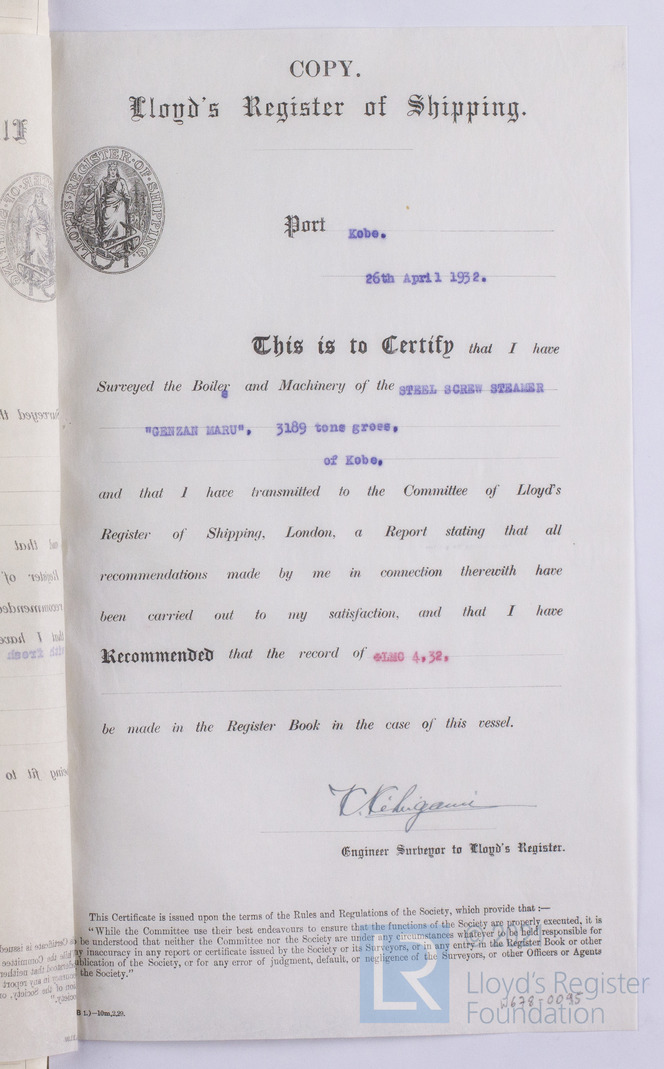 COPY.
Lloyd's Register of Shipping.
LLOYD'S REGISTER OF SHIPPING
Port Kobe.
26th April 1932.
This is to Certify that I have
Surveyed the Boilers and Machinery of the STEEL SCREW STEAMER
"GENZAN MARU", 3189 tons gross,
of Kobe,
and that I have transmitted to the Committee of Lloyd's
Register of Shipping, London, a Report stating that all
recommendations made by me in connection therewith have
been carried out to my satisfaction, and that I have
Recommended that the record of ✠LMC 4,32,
be made in the Register Book in the case of this vessel.
Engineer Surveyor to Lloyd's Register.
This Certificate is issued upon the terms of the Rules and Regulations of the Society, which provide that :—
"While the Committee use their best endeavours to ensure that the functions of the Society are properly executed, it is
to be understood that neither the Committee nor the Society are under any circumstances whatever to be held responsible for
any inaccuracy in any report or certificate issued by the Society or its Surveyors, or in any entry in the Register Book or other
publication of the Society, or for any error of judgment, default, or negligence of the Surveyors, or other Officers or Agents
the Society."
—10m,2,29.
LR
Lloyd's Register
Foundation
W678-0095